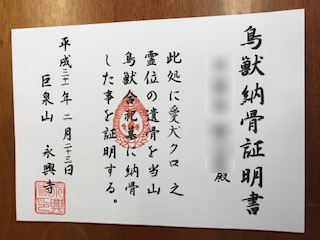 鳥獣納骨証明書
殿
此処に愛犬クロ之
霊位の遺骨を当山
鳥獣合祀墓に納骨
した事を証明する。
平成三十一年二月二十三日
巨泉山 永興寺